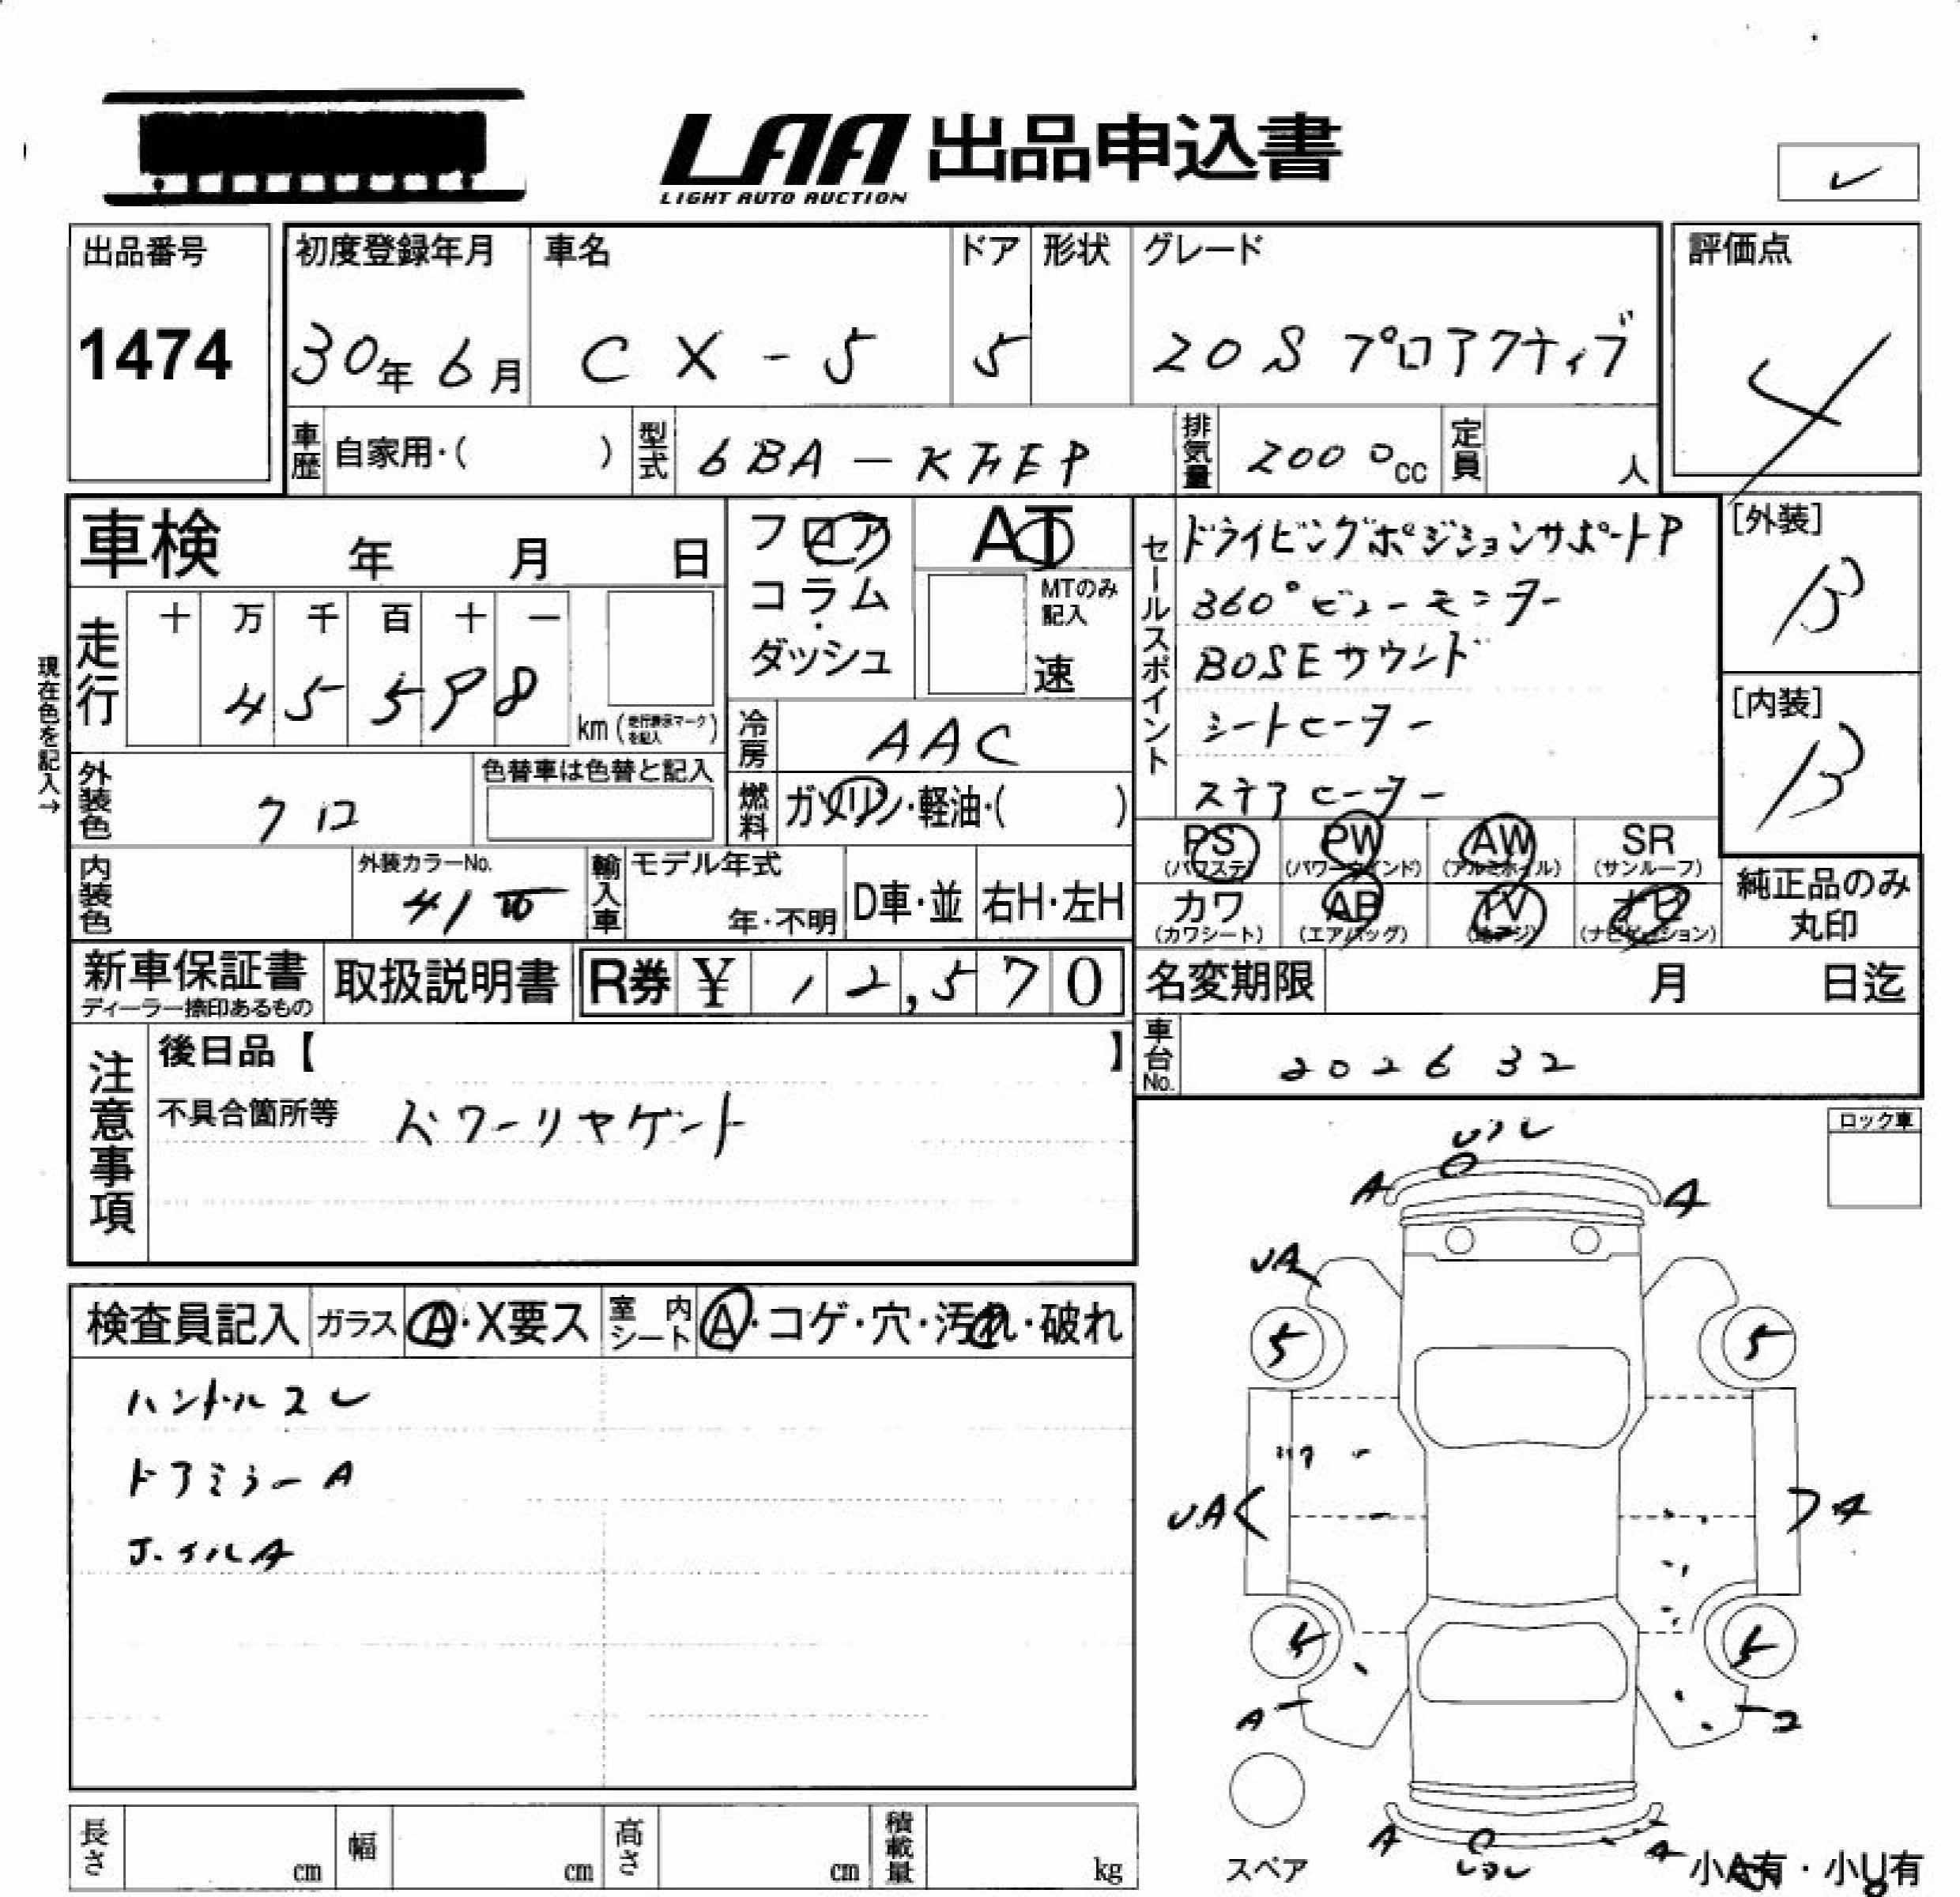 LAA 出品申込書
LIGHT AUTO AUCTION
出品番号
1474
初度登録年月
30年 6月
車名
CX-5
ドア
5
形状
グレード
20S プロアクティブ
評価点
4
車歴 自家用・( )
型式
6BA-KFEP
排気量 2000cc
定員 人
車検 年 月 日
フロア
コラム・
ダッシュ
AT
MTのみ
記入
速
セールスポイント
ドライビングポジションサポートP
360°ビューモニター
BOSEサウンド
シートヒーター
ステアヒーター
[外装]
B
[内装]
B
現在色を記入→
走行
十 万 千 百 十 一
4 5 5 9 8
km (走行表示マークを記入)
冷房
AAC
外装色
クロ
色替車は色替と記入
燃料
ガソリン・軽油・( )
PS
(パワステ)
PW
(パワーウインド)
AW
(アルミホイル)
SR
(サンルーフ)
内装色
外装カラーNo.
41
輸入車
モデル年式
年・不明
D車・並
右H・左H
カワ
(カワシート)
AB
(エアバッグ)
TV
(地デジ)
ナビ
(ナビゲーション)
純正品のみ
丸印
新車保証書
ディーラー捺印あるもの
取扱説明書
R券 ¥ 12,570
名変期限 月 日迄
注意事項
後日品【 】
不具合箇所等 パワーリヤゲート
車台No.
202632
ロック車
検査員記入
ガラス
A・X要ス
室内シート
A・コゲ・穴・汚れ・破れ
ハンドルスレ
ドアミラーA
ホイルA
A
A
UA
5
5
UA
A
5
5
A
A
A
スペア
小A有・小U有
長さ cm
幅 cm
高さ cm
積載量 kg